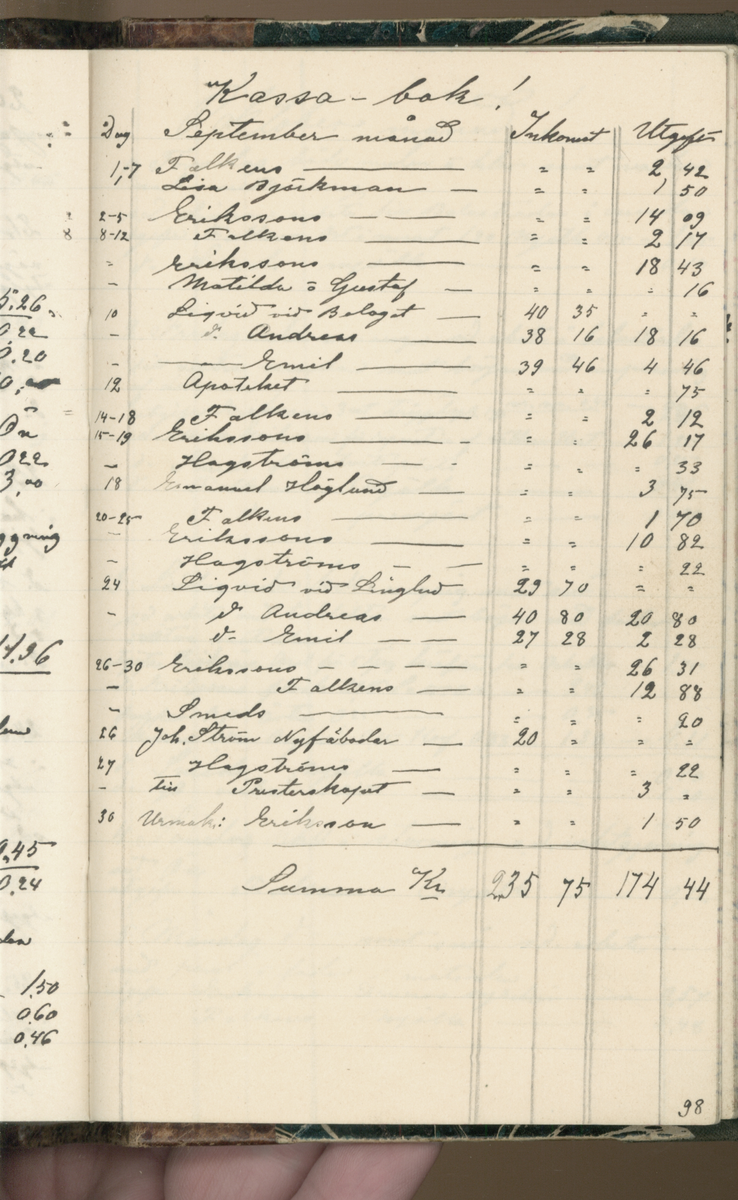 5.26
0.22
0.20
0.22
3,00
14.96
9.45
0.24
1.50
0.60
0.46
Kassa-bok!
Dag September månad Inkomst Utgift
1,-7 Falkens — " " 2 42
Lisa Björkman — " " 1 50
2-5 Erikssons — — " " 14 09
8 8-12 Falkens — " " 2 17
" Erikssons — " " 18 43
- Matilda o Gustaf - " " " 16
10 Liqvid vid Bolaget - 40 35 " "
- d. Andreas — 38 16 18 16
- — Emil — 39 46 4 46
12 Apoteket — " " " 75
14-18 Falkens — " " 2 12
15-19 Erikssons — - " " 26 17
- Hagströms — - " " " 33
18 Emanuel Höglund — " " 3 75
20-25 Falkens — " " 1 70
- Erikssons — " " 10 82
- Hagströms - - " " " 22
24 Liqvid vid 29 70 " "
- d. Andreas — 40 80 20 80
d- Emil — — 27 28 2 28
26-30 Erikssons - - - — " " 26 31
- Falkens — " " 12 88
- Smeds — " " " 20
26 Joh. Ström Nyfäboder — 20 " " "
27 Hagströms — " " " 22
- till Presterskapet — " " 3 "
30 Urmak.: Eriksson — " " 1 50
Summa Kr 235 75 174 44
98